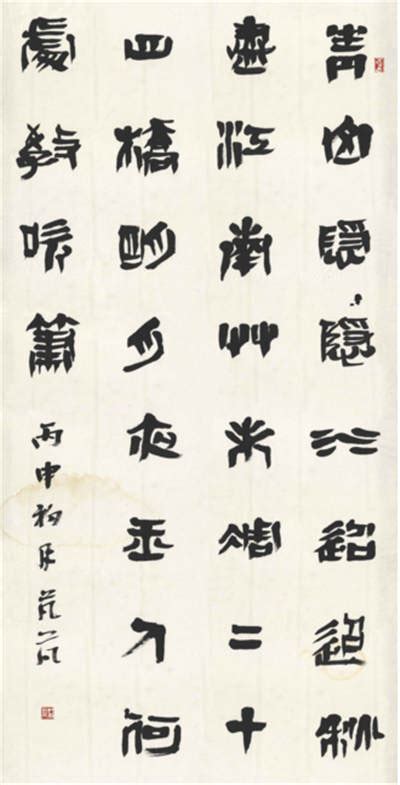 青山隱隱水迢迢秋
盡江南艸未凋二十
四橋明月夜玉人何
處教吹簫
丙申初